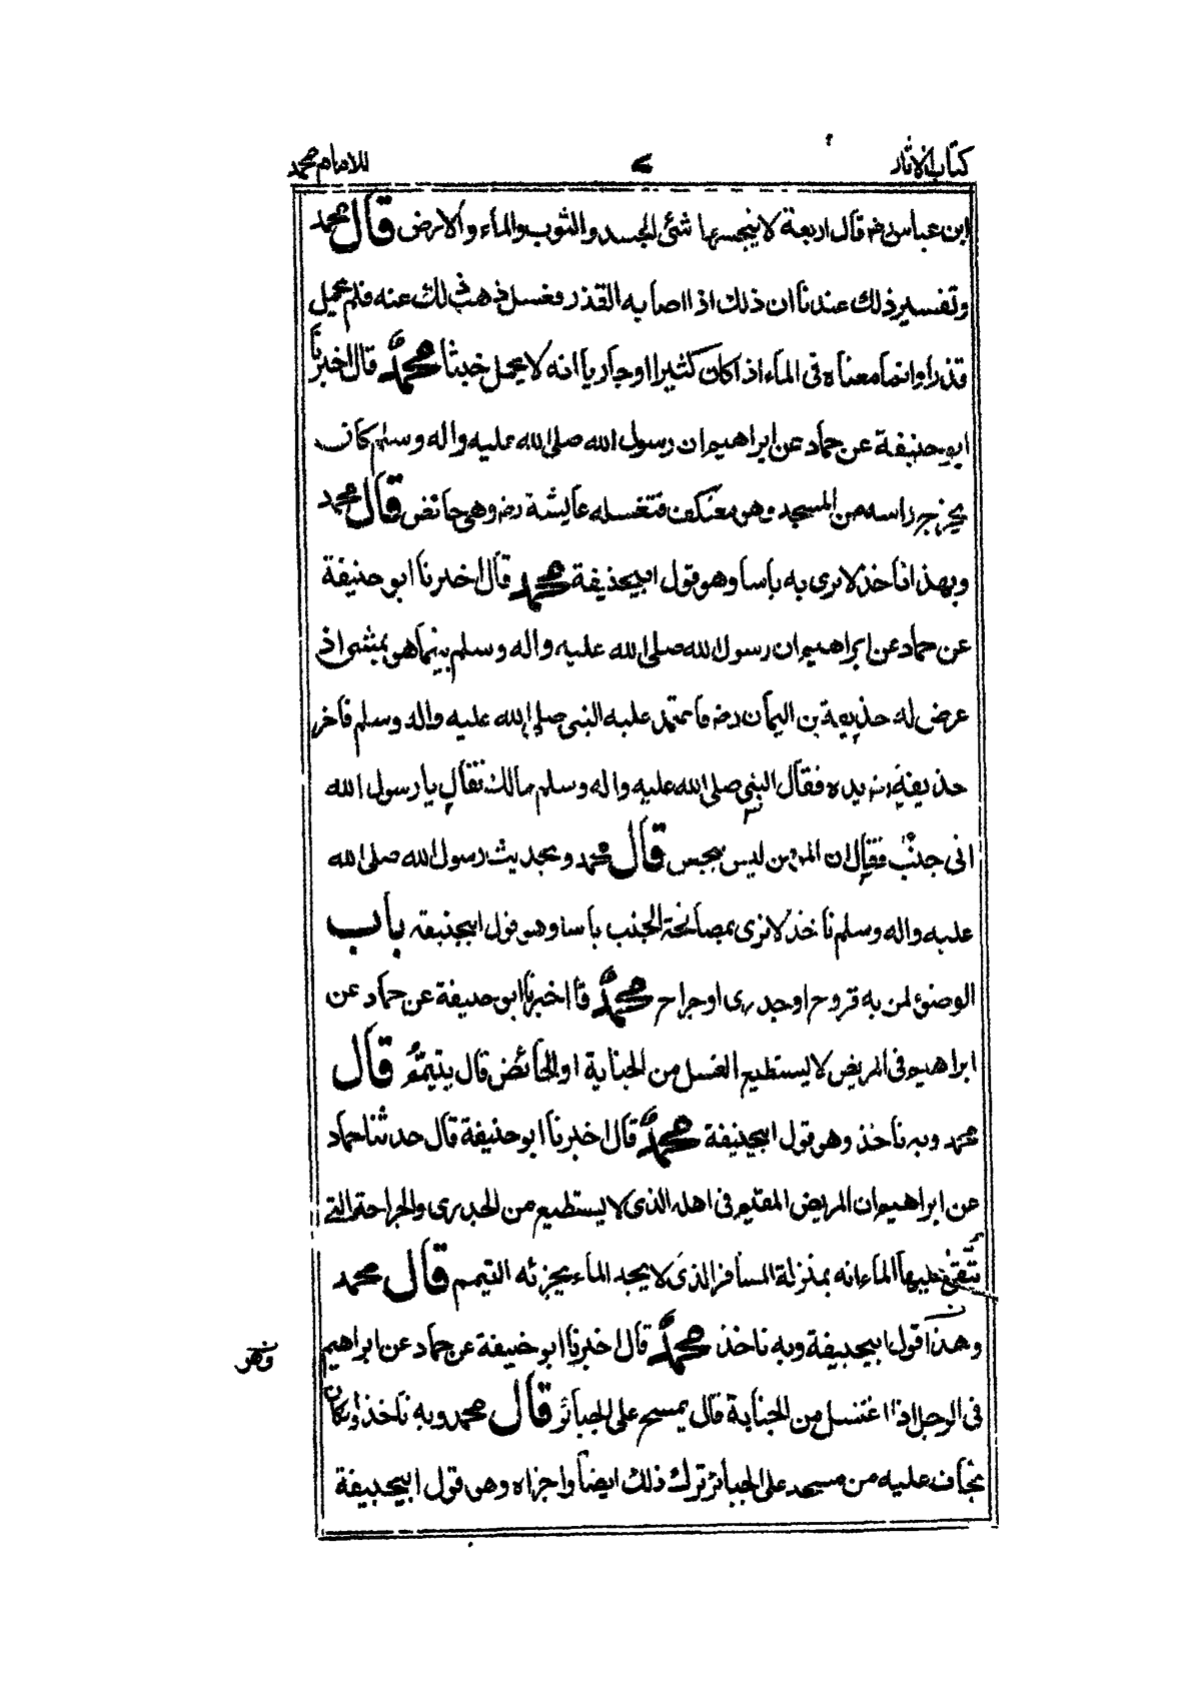 كتاب الاثار ٧ للامام محمد
ابن عباس رض قال اربعة لا ينجسها شئ الجسد والثوب والماء والارض قال محمد
وتفسير ذلك عندنا ان ذلك اذا اصابه القذر فغسل ذهب ذلك عنه فلم يحمل
قذرا وانما معناه فى الماء اذا كان كثيرا او جاريا انه لا يحمل خبثا محمد قال اخبرنا
ابو حنيفة عن حماد عن ابراهيم ان رسول الله صلى الله عليه واله وسلم كان
يخرج راسه من المسجد وهو معتكف فتغسله عايشة رض وهى حائض قال محمد
وبهذا ناخذ لا نرى به باسا وهو قول ابيحنيفة محمد قال اخبرنا ابو حنيفة
عن حماد عن ابراهيم ان رسول الله صلى الله عليه واله وسلم بينما هو يمشى اذ
عرض له حذيفة بن اليمان رض فاعتمد عليه النبى صلى الله عليه واله وسلم فاخر
حذيفة رض يده فقال النبى صلى الله عليه واله وسلم مالك فقال يا رسول الله
انى جنب فقال ان المؤمن ليس بنجس قال محمد وبحديث رسول الله صلى الله
عليه واله وسلم ناخذ لا نرى بمصافحة الجنب باسا وهو قول ابيحنيفة باب
الوضوء لمن به قروح او جدرى او جراح محمد قال اخبرنا ابو حنيفة عن حماد عن
ابراهيم فى المريض لا يستطيع الغسل من الجنابة او الحائض قال يتيمم قال
محمد وبه ناخذ وهو قول ابيحنيفة محمد قال اخبرنا ابو حنيفة قال حدثنا حماد
عن ابراهيم ان المريض المقيم فى اهله الذى لا يستطيع من الجدرى والجراحة التى
يتقى عليها الماء انه بمنزلة المسافر الذى لا يجد الماء يجزئه التيمم قال محمد
وهذا قول ابيحنيفة وبه ناخذ محمد قال اخبرنا ابو حنيفة عن حماد عن ابراهيم
فى الرجل اذا اغتسل من الجنابة قال يمسح على الجبائر قال محمد وبه ناخذ وان كان
يخاف عليه من مسحه على الجبائر ترك ذلك ايضا واجزاه وهو قول ابيحنيفة